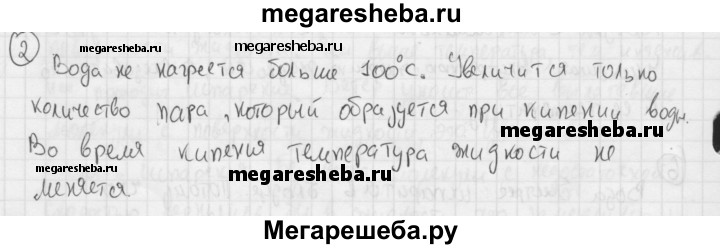 megaresheba.ru
2
megaresheba.ru megaresheba.ru
Вода не нагреется больше 100°C. Увеличится только
количество пара, который образуется при кипении воды.
megaresheba.ru
megaresheba.ru
Во время кипения температура жидкости не
megaresheba.ru
megaresheba.ru
меняется
Мегарешеба.ру